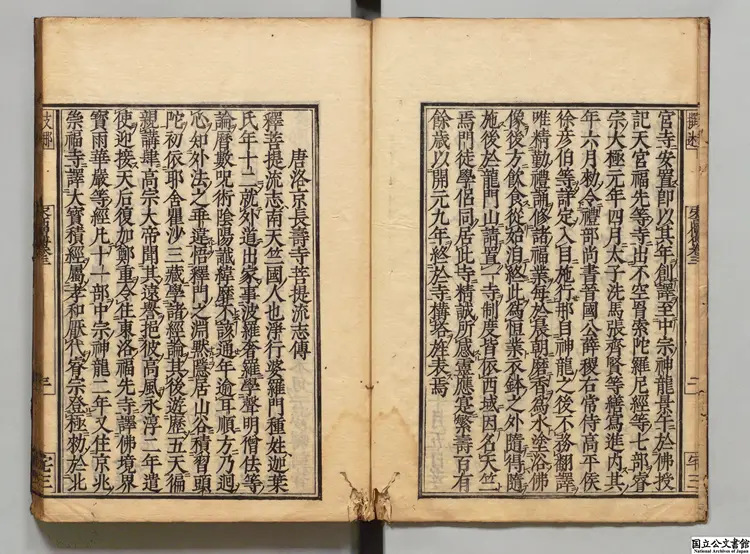 宮寺安置即以其年創譯至中宗神龍景午於佛授
記天宮福先等寺出不空罥索陀羅尼經等七部睿
宗大極元年四月太子洗馬張齊賢等繕寫進內其
年六月勑令禮部尚書晉國公薛稷右常侍高平侯
徐彥伯等詳定入目施行那自神龍之後不務翻譯
唯精勤禮誦修諸福業每於晨朝磨香爲水塗浴佛
像後方飲食從始洎終此爲恒業衣鉢之外隨得隨
施後於龍門山請置一寺制度皆依西域因名天竺
焉門徒學侶同居此寺精誠所感靈應寔繁壽百有
餘歲以開元九年終於寺構塔旌表焉
唐洛京長壽寺菩提流志傳
釋菩提流志南天竺國人也淨行婆羅門種姓迦葉
氏年十二就外道出家事波羅奢羅學聲明僧佉等
論曆數呪術陰陽讖緯靡不該通年逾耳順方乃迴
心知外法之乖違悟釋門之淵默隱居山谷積習頭
陀初依耶舍瞿沙三藏學諸經論其後遊歷五天徧
親講肆高宗大帝聞其遠譽挹彼高風永淳二年遣
使迎接天后復加鄭重令住東洛福先寺譯佛境界
寶雨華嚴等經凡十一部中宗神龍二年又住京兆
崇福寺譯大寶積經屬孝和厭代睿宗登極勑於北
三
宅三
国立公文書館
National Archives of Japan